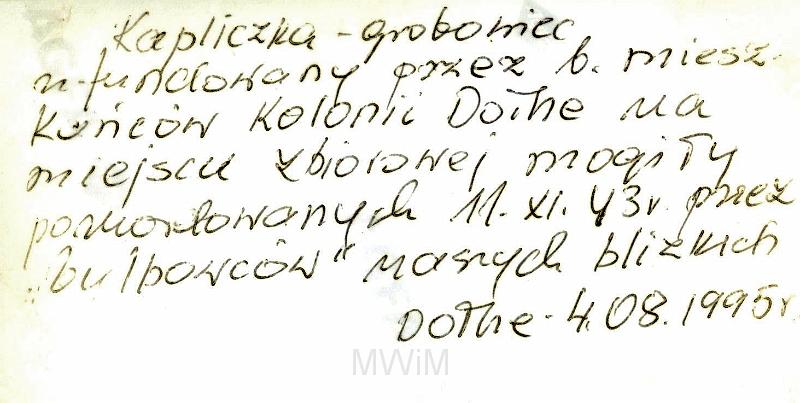 Kapliczka - grobowiec
u-fundowany przez b. miesz-
kańców Kolonii Dothe na
miejscu zbiorowej mogiły
pomordowanych 11. XI. 43r. przez
„bulbowców" naszych blizkich
Dothe - 4.08.1995r.
MWiM